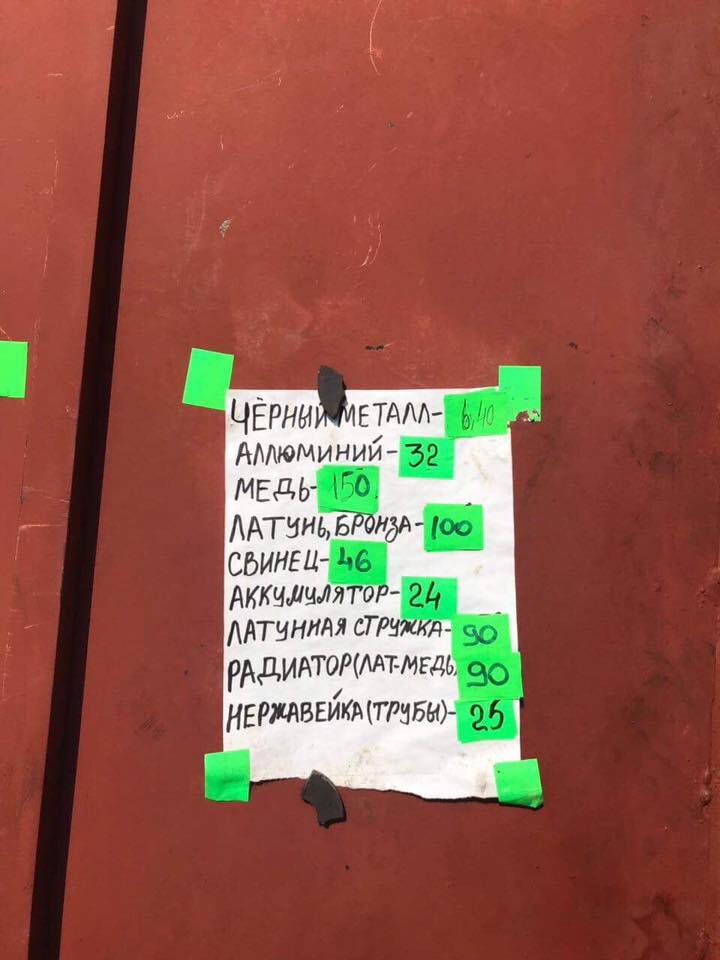 ЧЁРНЫЙ МЕТАЛЛ- 6,40
АЛЛЮМИНИЙ- 32
МЕДЬ- 150
ЛАТУНЬ, БРОНЗА- 100
СВИНЕЦ- 46
АККУМУЛЯТОР- 24
ЛАТУННАЯ СТРУЖКА- 90
РАДИАТОР(ЛАТ-МЕДЬ) 90
НЕРЖАВЕЙКА(ТРУБЫ)- 25